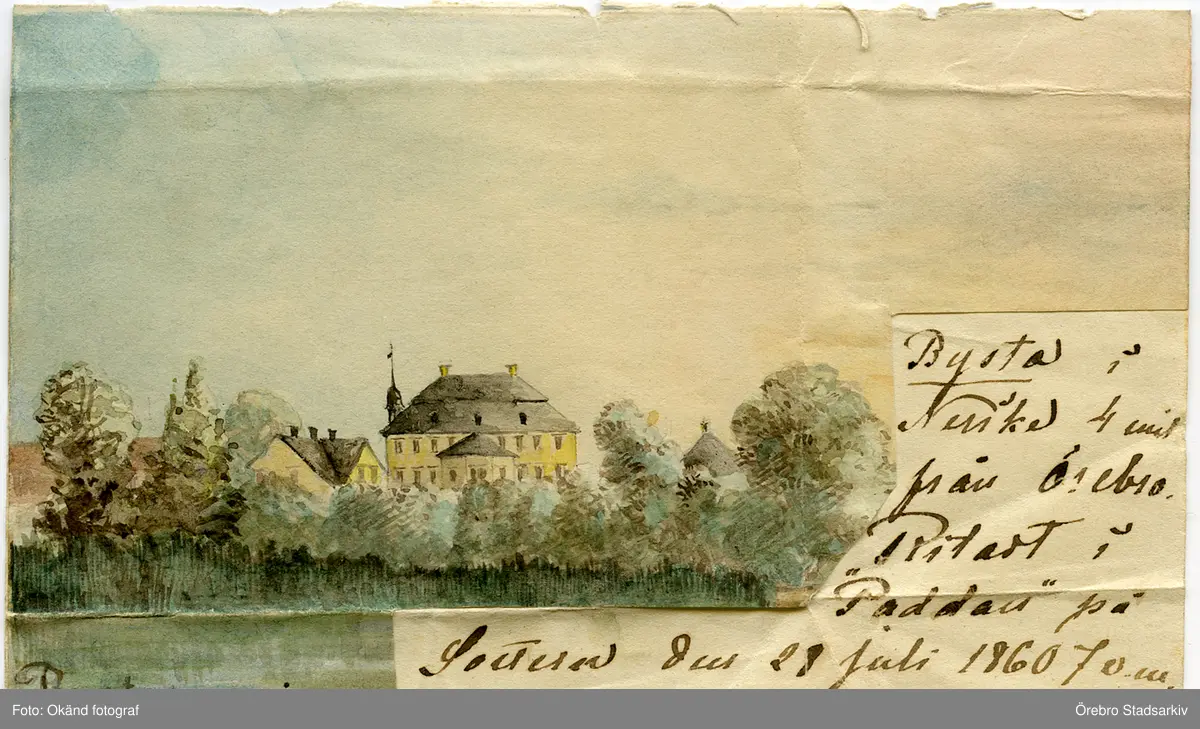 Bysta i
Nerike 4 mil
från Örebro.
„Ritadt i
Paddan" på
Sottern den 28 juli 1860 7 e.m.
Foto: Okänd fotograf
Örebro Stadsarkiv